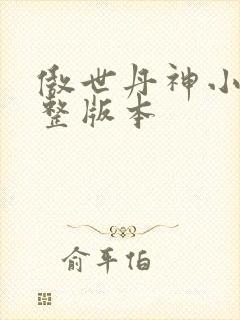 傲世丹神小
整版本
俞平伯